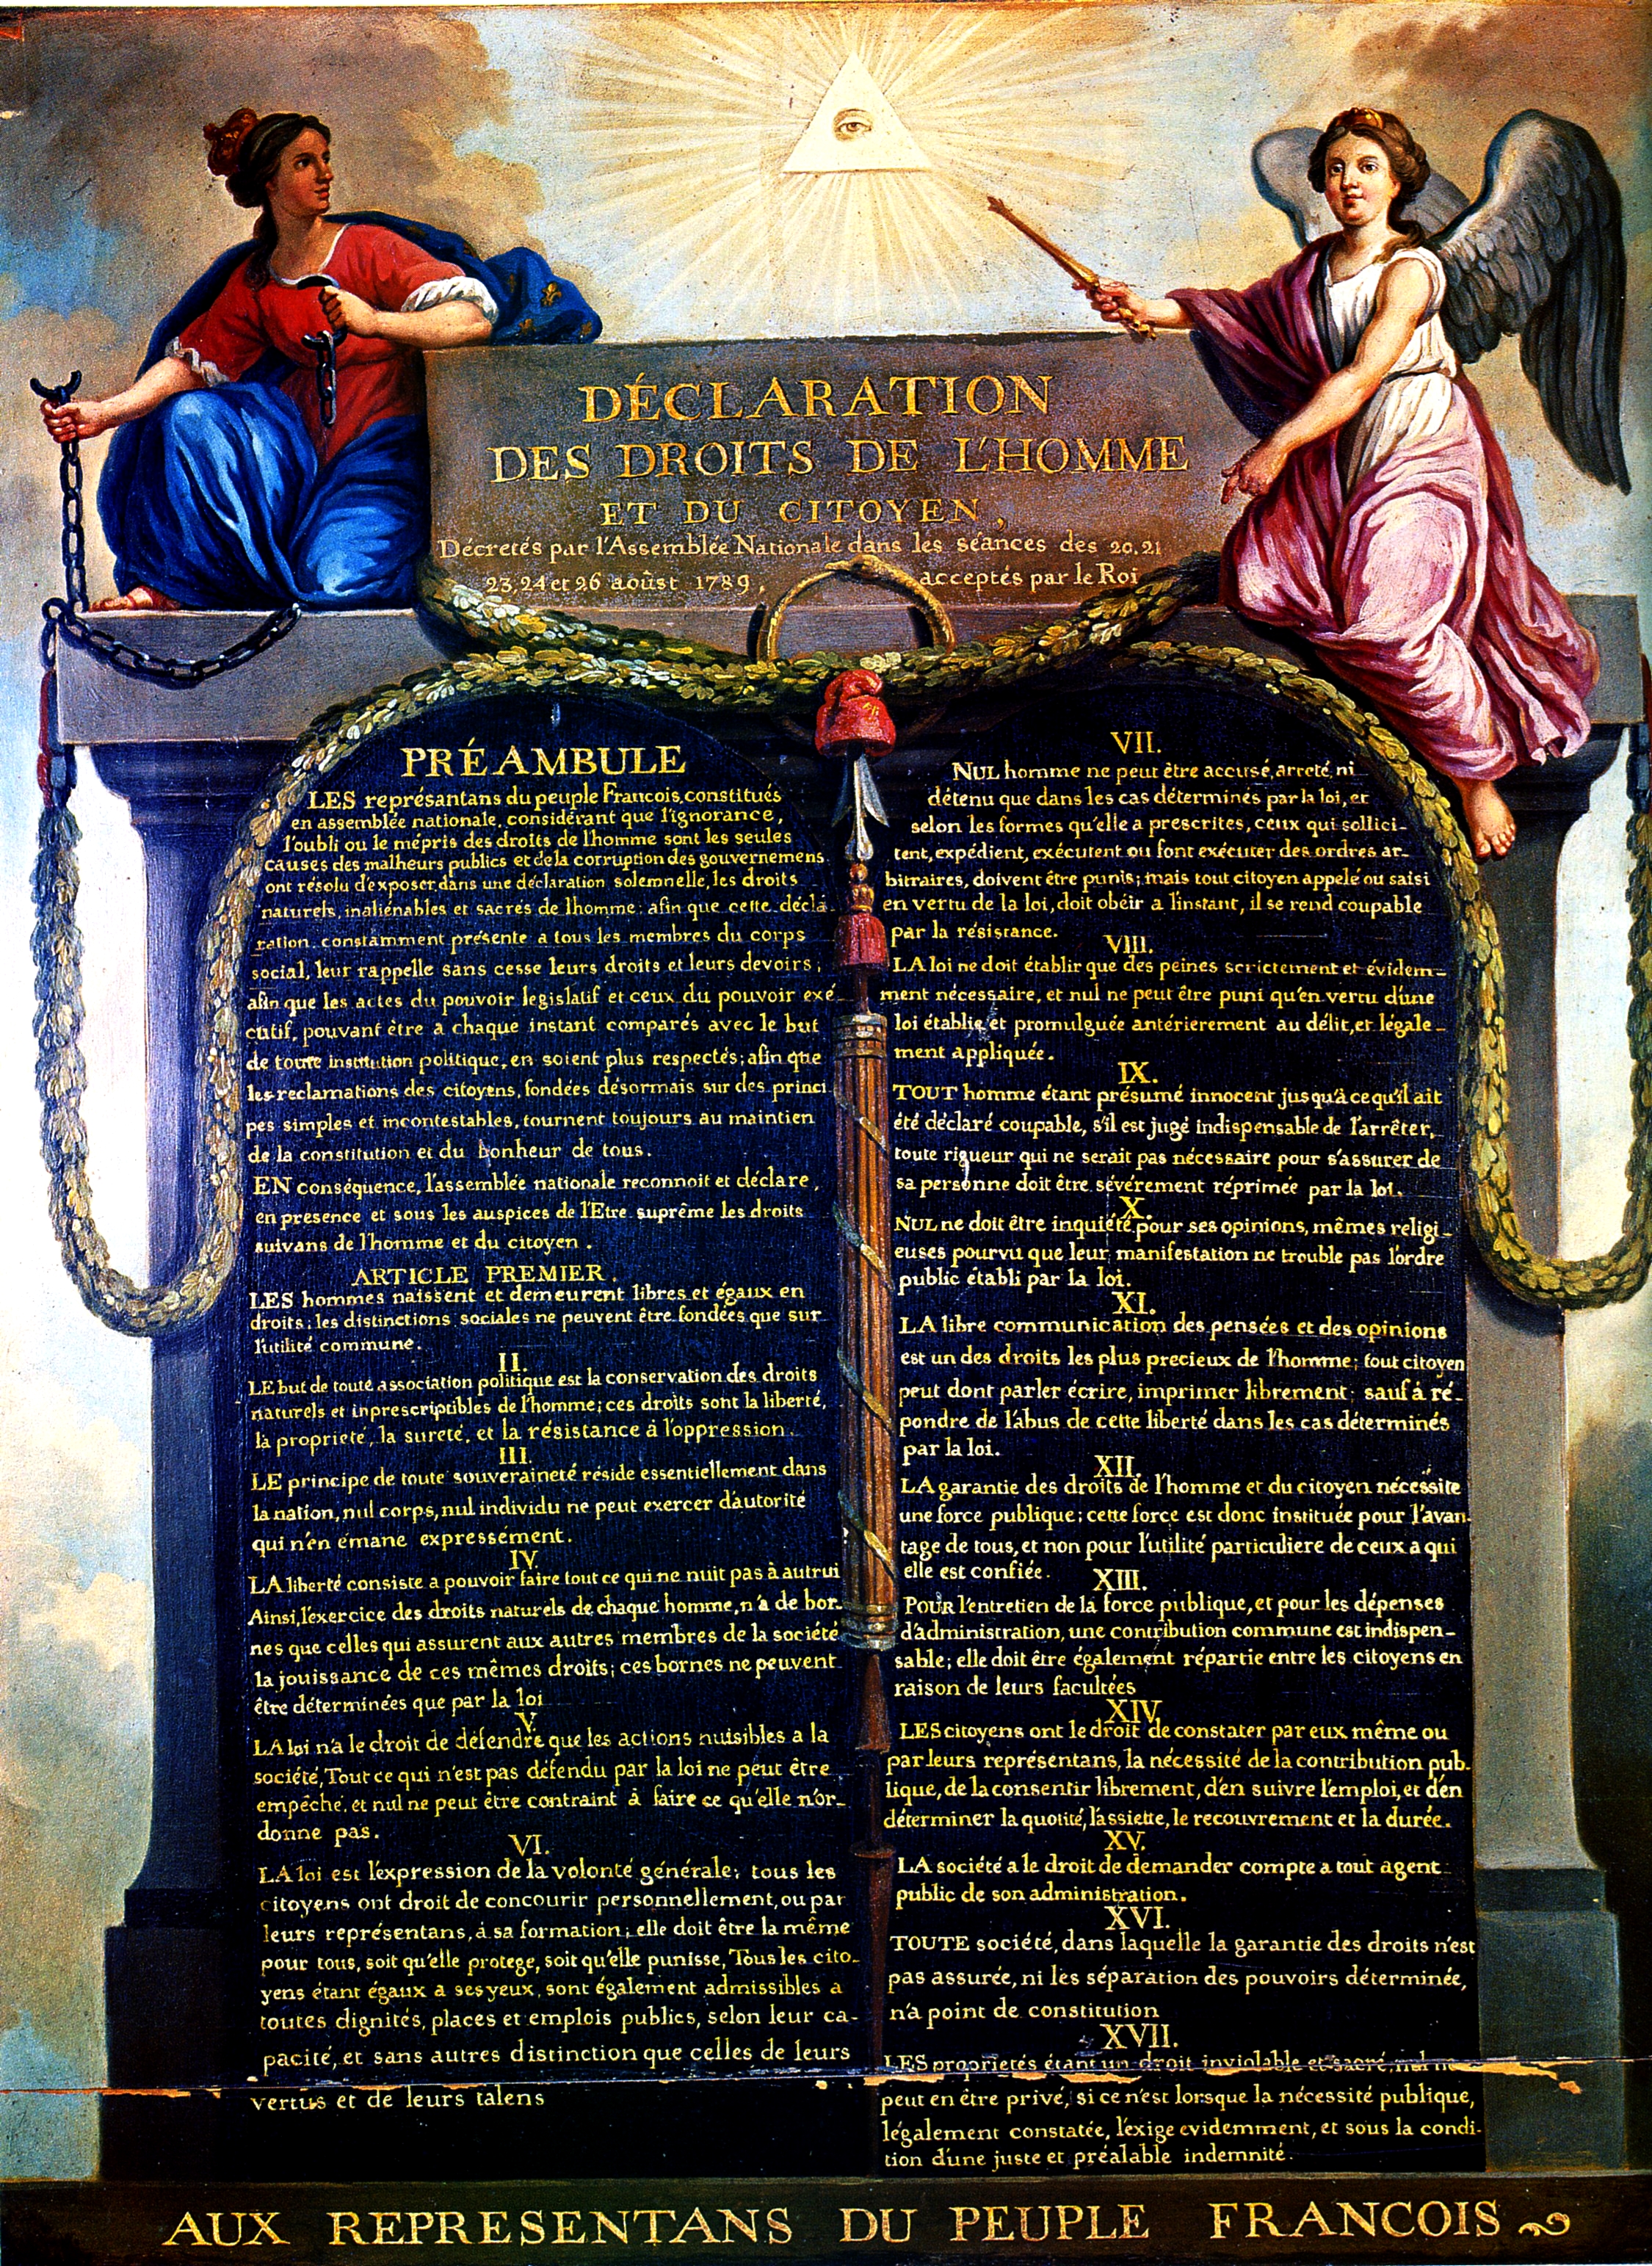 DÉCLARATION
DES DROITS DE L'HOMME
ET DU CITOYEN,
Décretés par l'Assemblée Nationale dans les séances des 20. 21
23, 24 et 26 aoûst 1789, acceptés par le Roi
PRÉAMBULE
LES représantans du peuple Francois, constitués
en assemblée nationale, considérant que l'ignorance,
l'oubli ou le mépris des droits de l'homme sont les seules
causes des malheurs publics et de la corruption des gouvernemens
ont résolu d'exposer dans une déclaration solemnelle, les droits
naturels, inaliénables et sacrés de l'homme; afin que cette décla-
ration, constamment présente a tous les membres du corps
social, leur rappelle sans cesse leurs droits et leurs devoirs;
afin que les actes du pouvoir legislatif et ceux du pouvoir exé-
cutif, pouvant être a chaque instant comparés avec le but
de toute institution politique, en soient plus respectés; afin que
les reclamations des citoyens, fondées désormais sur des princi
pes simples et incontestables, tournent toujours au maintien
de la constitution et du bonheur de tous.
EN conséquence, l'assemblée nationale reconnoit et déclare,
en presence et sous les auspices de l'Etre suprême les droits
suivans de l'homme et du citoyen.
ARTICLE PREMIER.
LES hommes naissent et demeurent libres et égaux en
droits; les distinctions sociales ne peuvent être fondées que sur
l'utilité commune.
II.
LE but de toute association politique est la conservation des droits
naturels et inprescriptibles de l'homme; ces droits sont la liberté,
la proprieté, la sureté, et la résistance à l'oppression.
III.
LE principe de toute souveraineté réside essentiellement dans
la nation, nul corps, nul individu ne peut exercer d'autorité
qui n'en émane expressément.
IV.
LA liberté consiste a pouvoir faire tout ce qui ne nuit pas à autrui
Ainsi, l'exercice des droits naturels de chaque homme, n'a de bor-
nes que celles qui assurent aux autres membres de la société
la jouissance de ces mêmes droits; ces bornes ne peuvent
être déterminées que par la loi
V.
LA loi n'a le droit de défendre que les actions nuisibles a la
société, Tout ce qui n'est pas défendu par la loi ne peut être
empêché, et nul ne peut être contraint à faire ce qu'elle n'or-
donne pas.
VI.
LA loi est l'expression de la volonté générale; tous les
citoyens ont droit de concourir personnellement, ou par
leurs représentans, à sa formation; elle doit être la même
pour tous, soit qu'elle protege, soit qu'elle punisse, Tous les cito-
yens étant égaux a ses yeux, sont également admissibles a
toutes dignités, places et emplois publics, selon leur ca-
pacité, et sans autres distinction que celles de leurs
vertus et de leurs talens
VII.
NUL homme ne peut être accusé, arreté, ni
détenu que dans les cas déterminés par la loi, et
selon les formes qu'elle a prescrites, ceux qui sollici-
tent, expédient, exécutent ou font exécuter des ordres ar-
bitraires, doivent être punis; mais tout citoyen appelé ou saisi
en vertu de la loi, doit obéir a l'instant, il se rend coupable
par la résistance.
VIII.
LA loi ne doit établir que des peines strictement et évidem-
ment nécessaire, et nul ne peut être puni qu'en vertu d'une
loi établie et promulguée antérierement au délit, et légale-
ment appliquée.
IX.
TOUT homme étant présumé innocent jusqu'à ce qu'il ait
été déclaré coupable, s'il est jugé indispensable de l'arrêter,
toute rigueur qui ne serait pas nécessaire pour s'assurer de
sa personne doit être sévérement réprimée par la loi.
X.
NUL ne doit être inquiété pour ses opinions, mêmes religi-
euses pourvu que leur manifestation ne trouble pas l'ordre
public établi par la loi.
XI.
LA libre communication des pensées et des opinions
est un des droits les plus precieux de l'homme; tout citoyen
peut dont parler écrire, imprimer librement; sauf à ré-
pondre de l'abus de cette liberté dans les cas déterminés
par la loi.
XII.
LA garantie des droits de l'homme et du citoyen nécessite
une force publique; cette force est donc instituée pour l'avan-
tage de tous, et non pour l'utilité particuliere de ceux a qui
elle est confiée.
XIII.
POUR l'entretien de la force publique, et pour les dépenses
d'administration, une contribution commune est indispen-
sable; elle doit être également répartie entre les citoyens en
raison de leurs facultées
XIV.
LES citoyens ont le droit de constater par eux même ou
par leurs représentans, la nécessité de la contribution pub-
lique, de la consentir librement, d'en suivre l'emploi, et d'en
déterminer la quotité, l'assiette, le recouvrement et la durée.
XV.
LA société a le droit de demander compte a tout agent
public de son administration.
XVI.
TOUTE société, dans laquelle la garantie des droits n'est
pas assurée, ni les séparation des pouvoirs déterminée,
n'a point de constitution
XVII.
LES proprietés étant un droit inviolable et sacré, nul ne
peut en être privé, si ce n'est lorsque la nécessité publique,
légalement constatée, l'exige evidemment, et sous la condi-
tion d'une juste et préalable indemnité.
AUX REPRESENTANS DU PEUPLE FRANCOIS